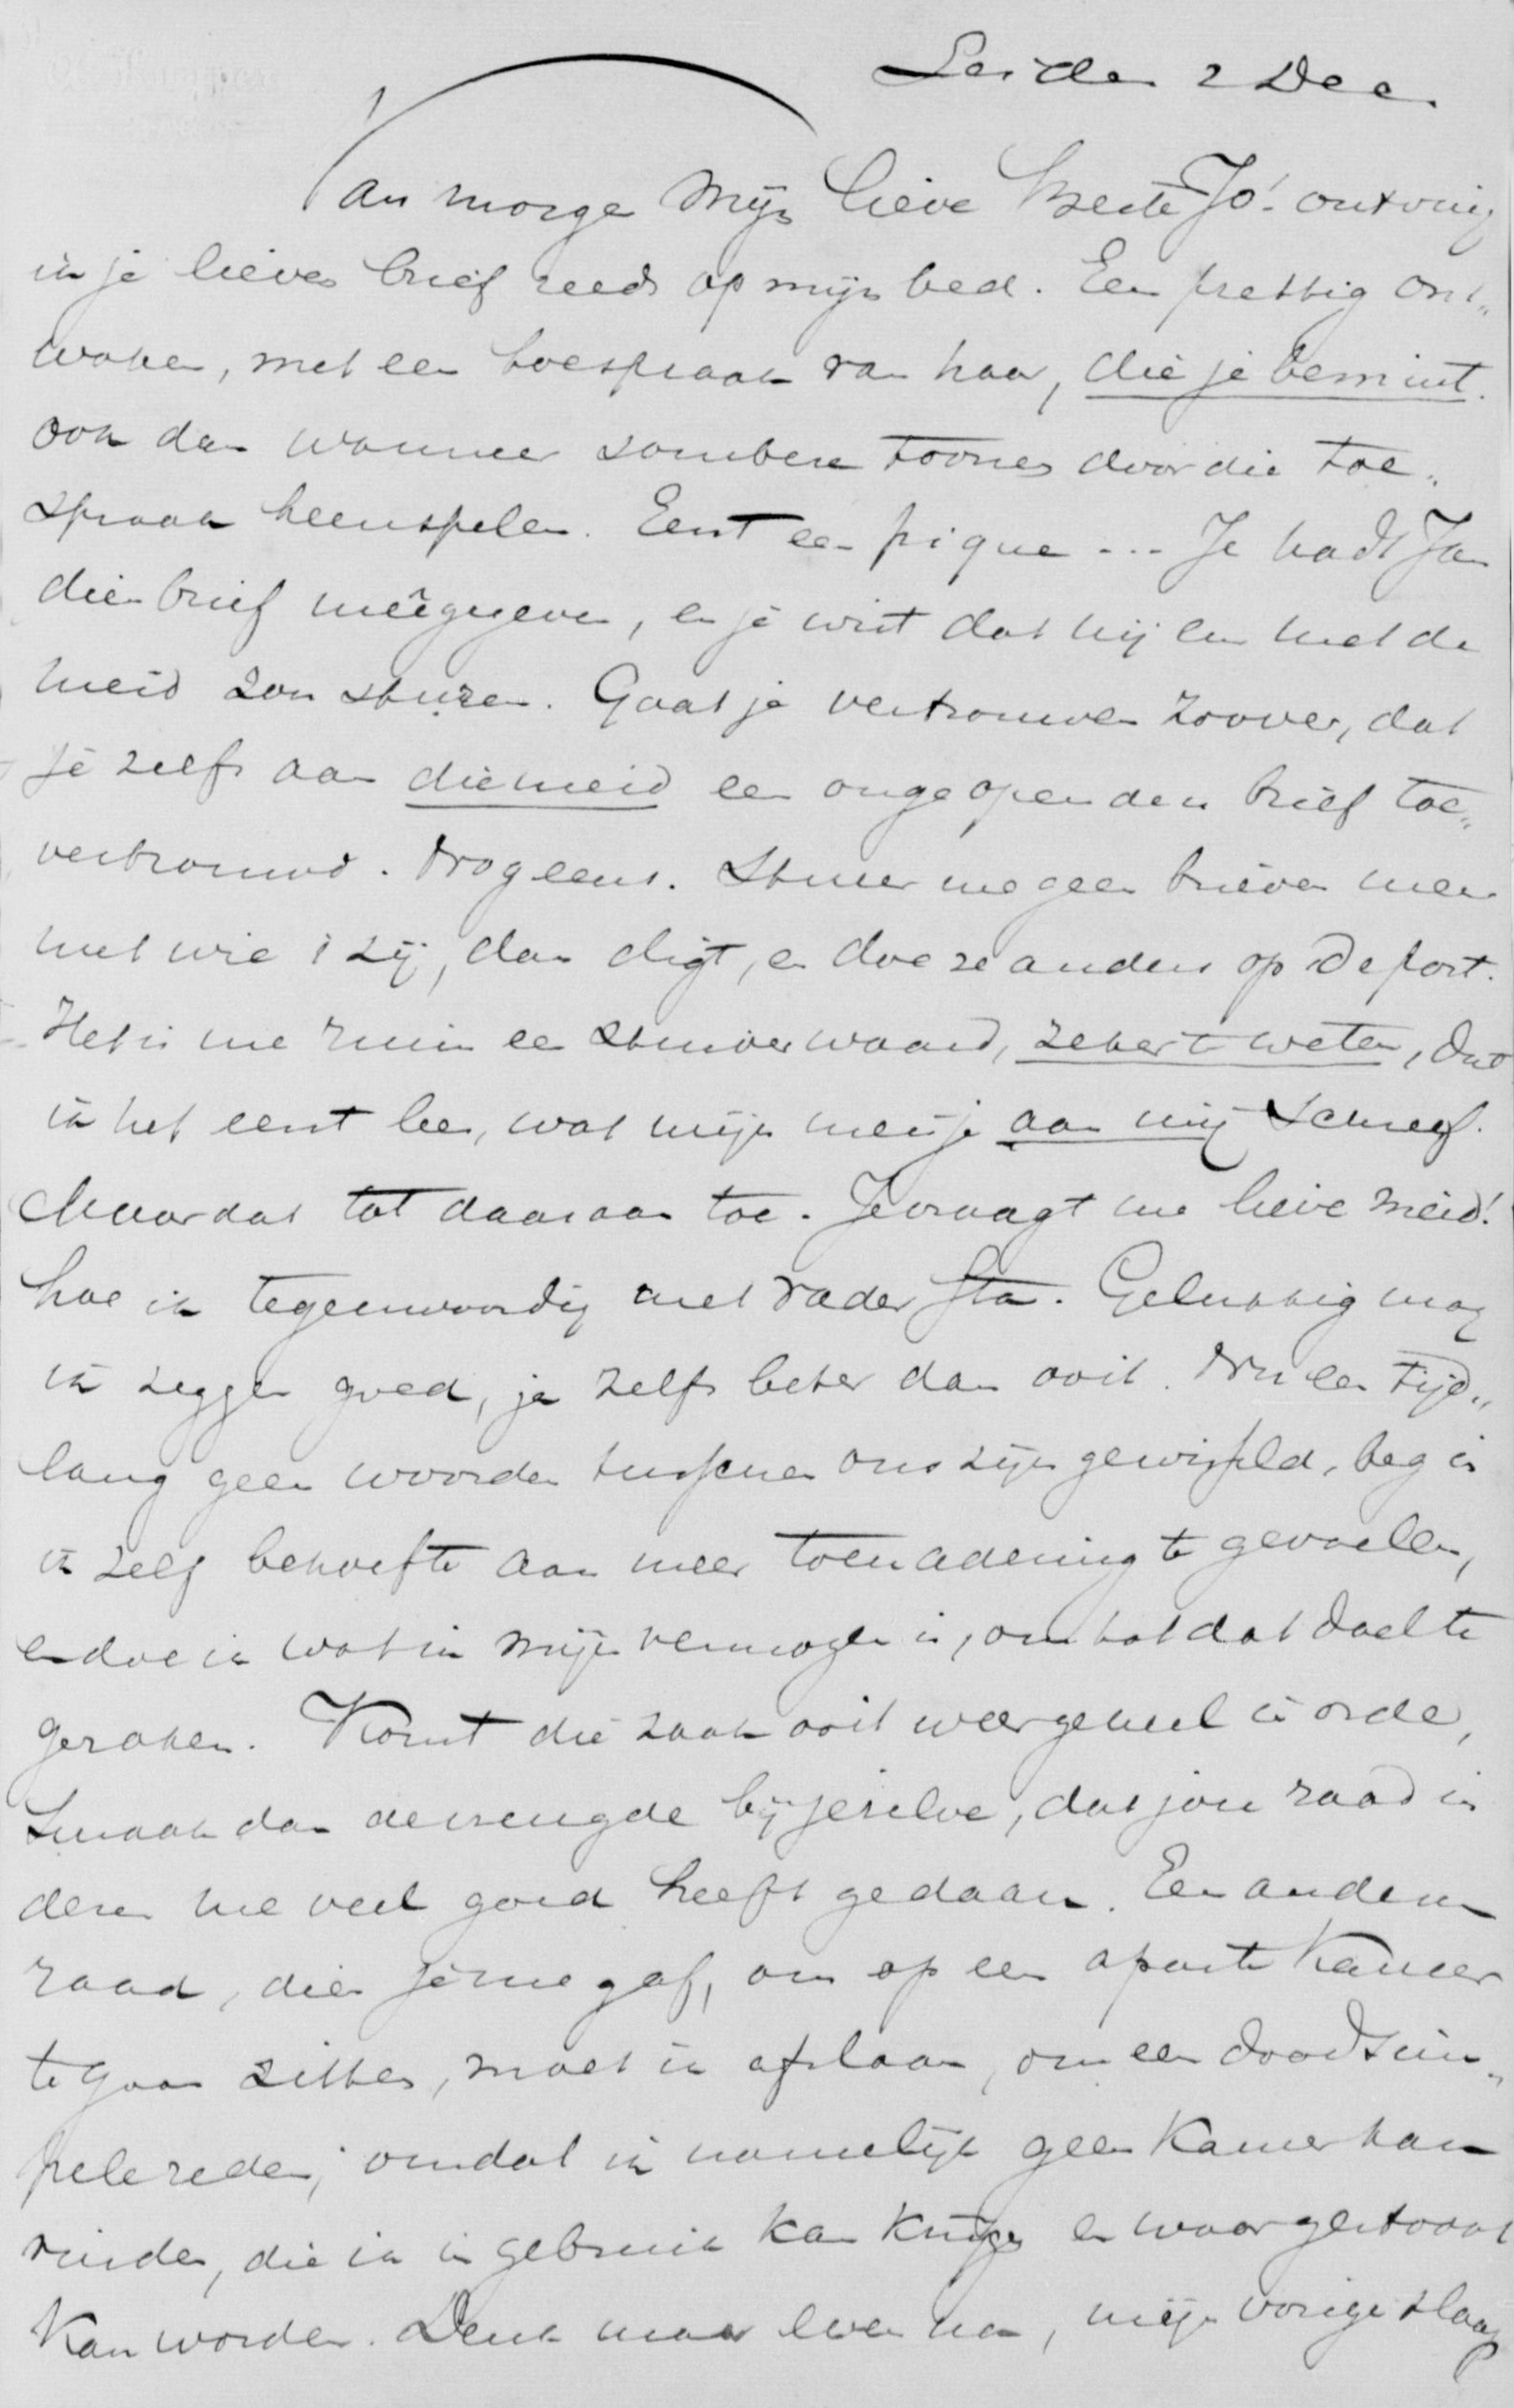 Leiden 2 Dec.
Van morge Mijn lieve beste Jo! ontving
ik je lieven brief reeds op mijn bed. Een prettig ont„
waken, met een toespraak van haar, die je bemint.
ook dan wanneer sombere toonen door die toe„
spraak heenspelen. Eerst een pique ... Je hadt Jan
dien brief meêgegeven, en je wist dat hij en met de
meid zou sturen. Gaat je vertrouwen zoover, dat
je zelfs aan die meid een ongeopenden brief toe„
vertrouwd. Nog eens. Stuur me geen brieven meer
met wie 't zij, dan digt, en doe ze anders op de post.
Het is me ruim een stuiver waard, zeker te weten, dat
ik het eerst lees, wat mijn meisje aan mij schreef.
Maar dat tot daaraan toe. Je vraagt me lieve meid!
hoe ik tegenwoordig met Vader sta. Gelukkig mag
ik zeggen goed, ja zelfs beter dan ooit. Nu een tijd„
lang geen woorden tusschen ons zijn gewisseld, beg in
ik zelf behoefte aan meer toenadering te gevoelen,
en doe ik wat in mijn vermogen is, om tot dat doel te
geraken. Komt die zaak ooit weer geheel in orde,
Smaak dan de vreugde bij jezelve, dat jou raad in
deze me veel goed heeft gedaan. Een anderen
raad, dien je me gaf, om op een aparte Kamer
te gaan zitten, moet ik afslaan, om een doodsim„
pele reden, omdat ik namelijk geen Kamer kan
vinden, die ik in gebruik kan krijgen en waar gestookt
Kan worden. Denk maar even na, mijn vorige slaap